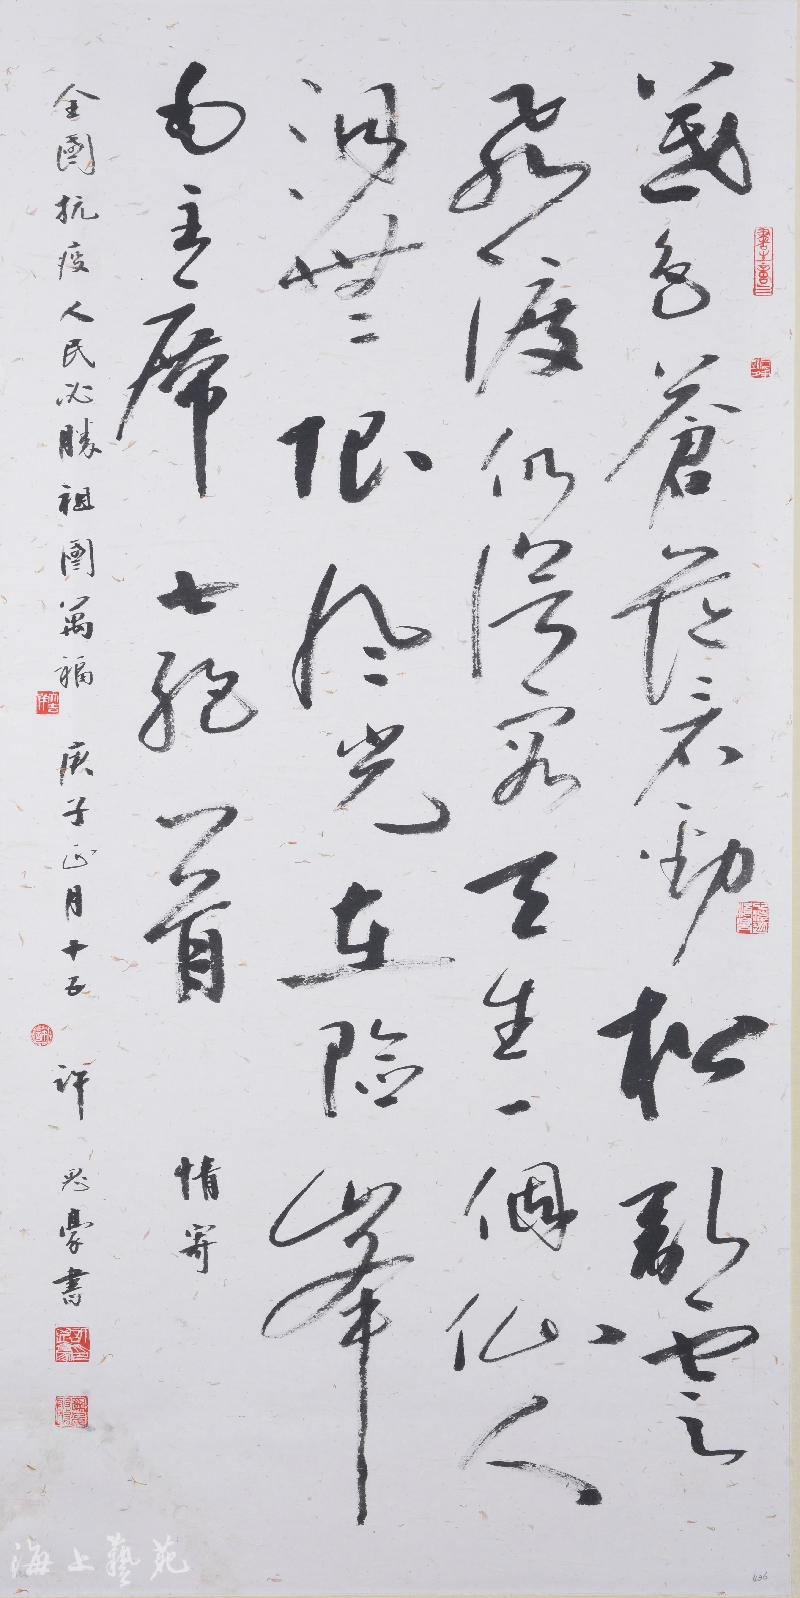 暮色蒼茫看勁松亂雲
飛渡仍從容天生一個仙人
洞無限風光在險峯
毛主席七絕一首 情寄
全國抗疫人民必勝祖國萬福 庚子正月十五 許思豪書
海上藝苑